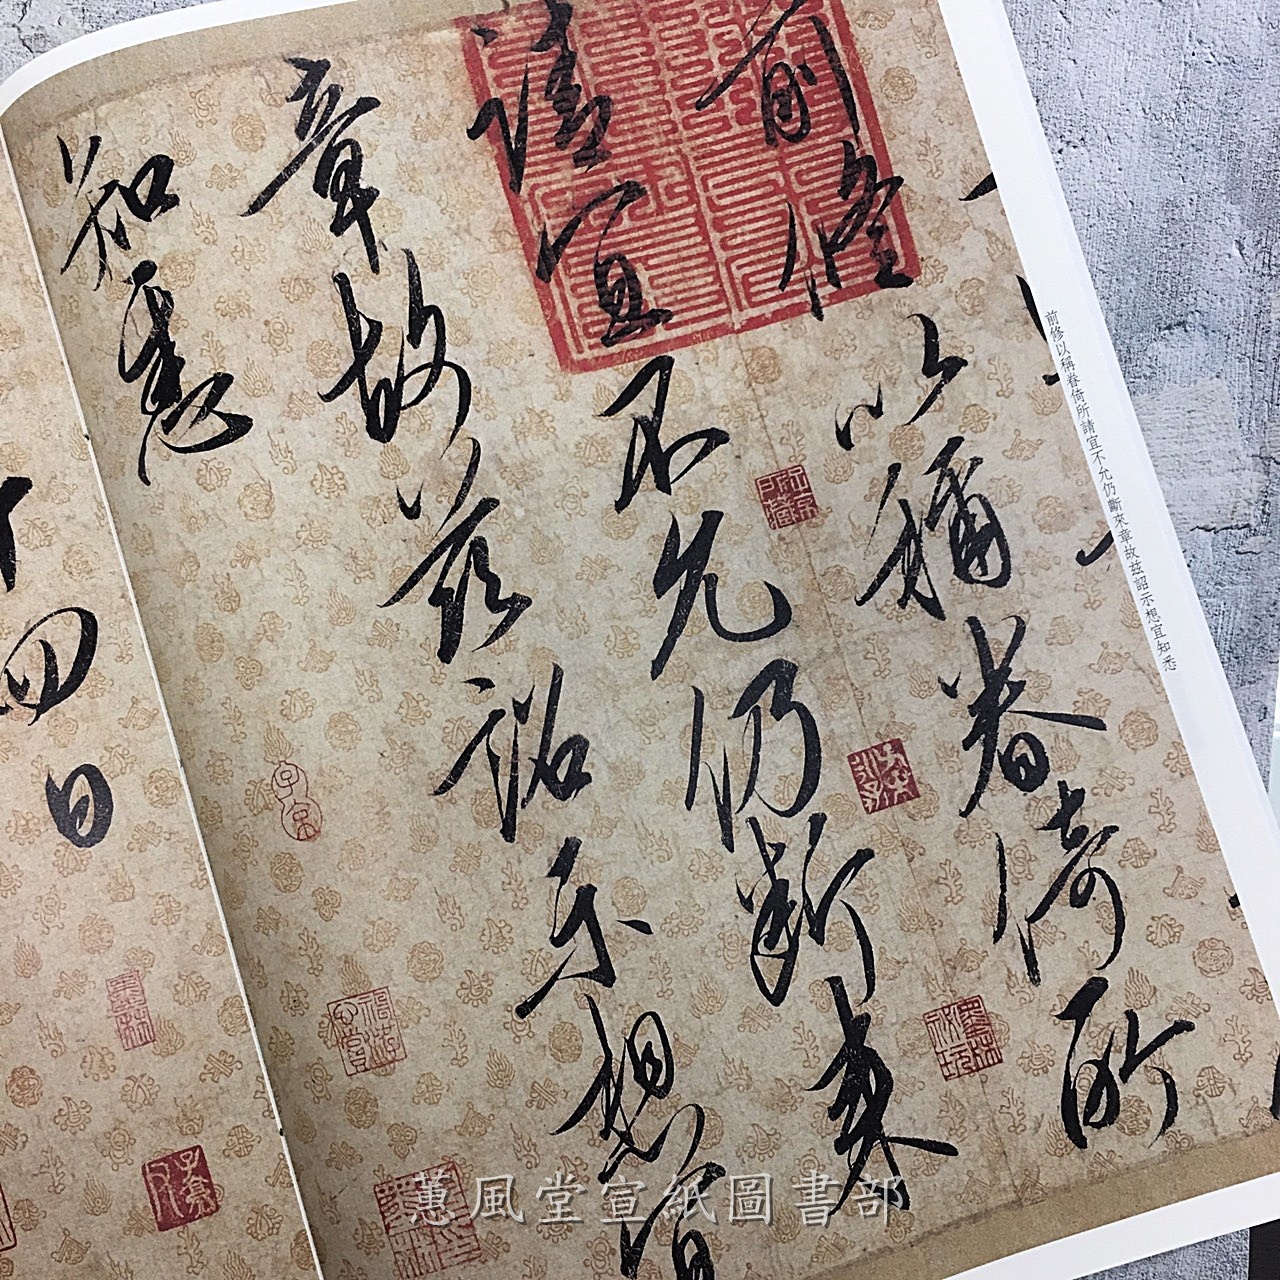 前修以稱眷倚所
請宜不允仍斷來
章故茲詔示想宜
知悉
四日
前修以稱眷倚所請宜不允仍斷來章故茲詔示想宜知悉
蕙風堂宣紙圖書部